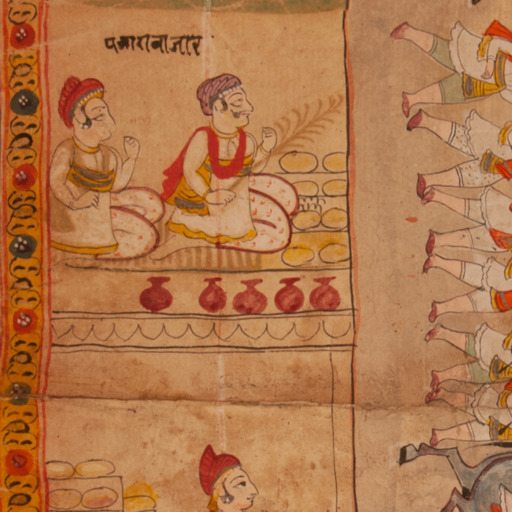 पसारावाजार